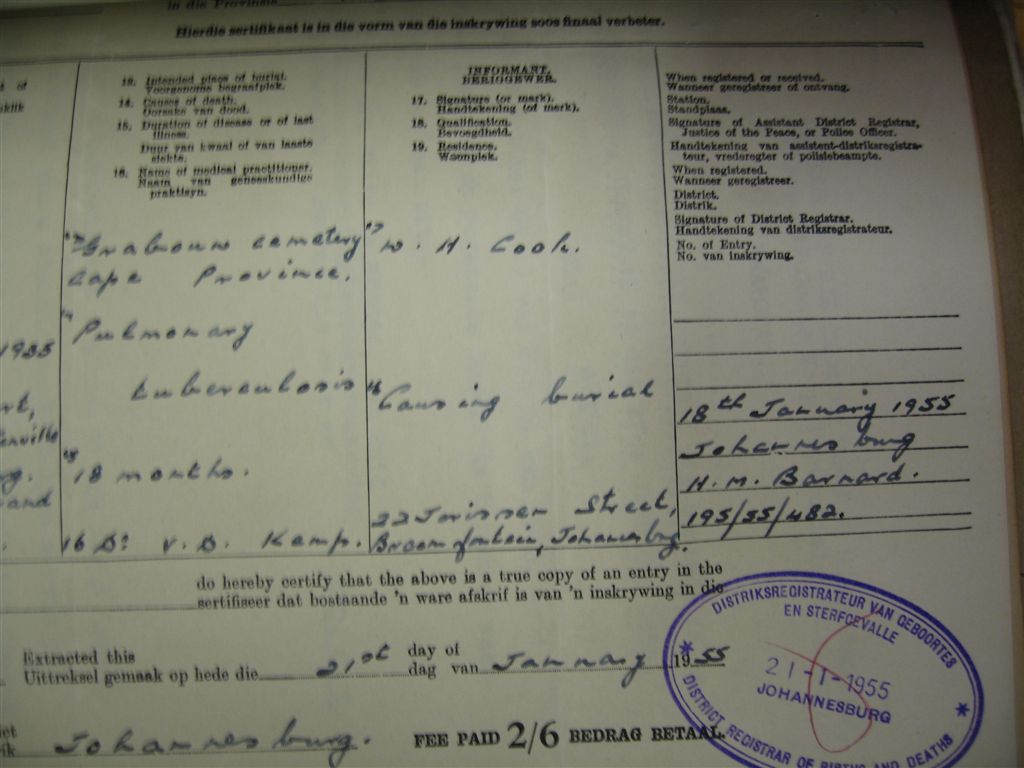 in die Provinsie
Hierdie sertifikaat is in die vorm van die inskrywing soos finaal verbeter.
13. Intended place of burial.
Voorgenome begraafplek.
14. Causes of death.
Oorsake van dood.
15. Duration of disease or of last
illness.
Duur van kwaal of van laaste
siekte.
16. Name of medical practitioner.
Naam van geneeskundige
praktisyn.
INFORMANT.
BERIGGEWER.
17. Signature (or mark).
Handtekening (of merk).
18. Qualification.
Bevoegdheid.
19. Residence.
Woonplek.
When registered or received.
Wanneer geregistreer of ontvang.
Station.
Standplaas.
Signature of Assistant District Registrar,
Justice of the Peace, or Police Officer.
Handtekening van assistent-distriksregistra-
teur, vrederegter of polisiebeampte.
When registered.
Wanneer geregistreer.
District.
Distrik.
Signature of District Registrar.
Handtekening van distriksregistrateur.
No. of Entry.
No. van inskrywing.
Grabouw cemetery
Cape Province.
Pulmonary
tuberculosis
18 months.
16 Dr. v. D. Kamp.
17 W. H. Cook.
Causing burial
22 Jorissen Street,
Braamfontein, Johannesburg.
1955
and
18th January 1955
Johannesburg
H. M. Barnard.
195/55/482.
do hereby certify that the above is a true copy of an entry in the
sertifiseer dat bostaande 'n ware afskrif is van 'n inskrywing in die
Extracted this
Uittreksel gemaak op hede die
21st
day of
dag van
January
1955
Johannesburg.
FEE PAID 2/6 BEDRAG BETAAL.
DISTRIKSREGISTRATEUR VAN GEBOORTES
EN STERFGEVALLE
21-1-1955
JOHANNESBURG
DISTRICT REGISTRAR OF BIRTHS AND DEATHS